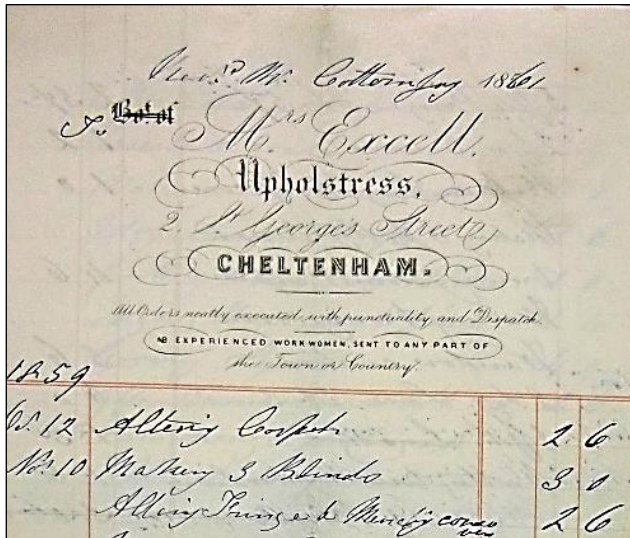 Rev.d Mr. Cottom 1861
To Bo.t of
Mrs Excell,
Upholstress,
2. St George's Street,
CHELTENHAM.
All Orders neatly executed with punctuality and Dispatch.
NB EXPERIENCED WORK WOMEN, SENT TO ANY PART OF
the Town or Country.
1859
12 Altering Carpets 2 6
Nov 10 Making 3 Blinds 3 0
Altering Fringe & Mending 2 6